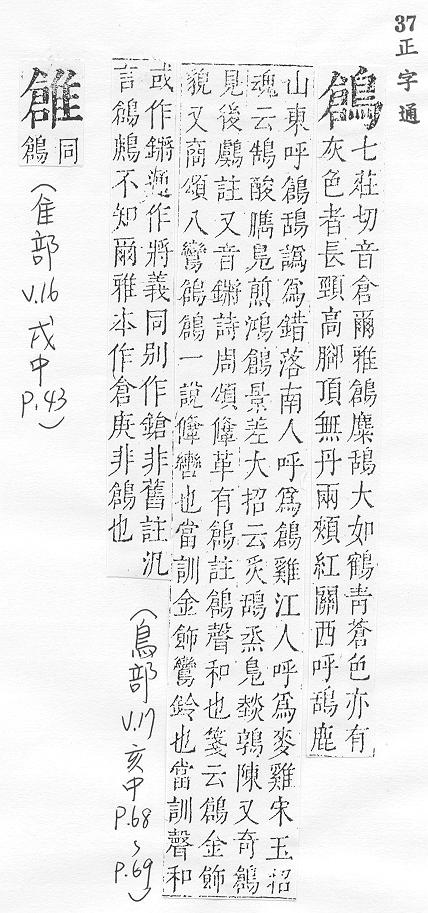 37正字通
鶬
七莊切音倉爾雅鶬麋鴰大如鶴青蒼色亦有
灰色者長頸高腳頂無丹兩頰紅關西呼鴰鹿
山東呼鶬鴰譌爲錯落南人呼爲鶬雞江人呼爲麥雞宋玉招
魂云鵠酸臇鳧煎鴻鶬景差大招云炙鴰烝鳧煔鶉陳又奇鶬
見後鸆註又音鏘詩周頌鞗革有鶬註鶬聲和也箋云鶬金飾
貌又商頌八鸞鶬鶬一說鞗轡也當訓金飾鸞鈴也當訓聲和
或作鏘通作將義同別作鎗非舊註汎
言鶬鷞不知爾雅本作倉庚非鶬也
(鳥部 V.17 亥中 P.68~P.69)
雂
同鶬
(隹部 V.16 戌中 P.43)